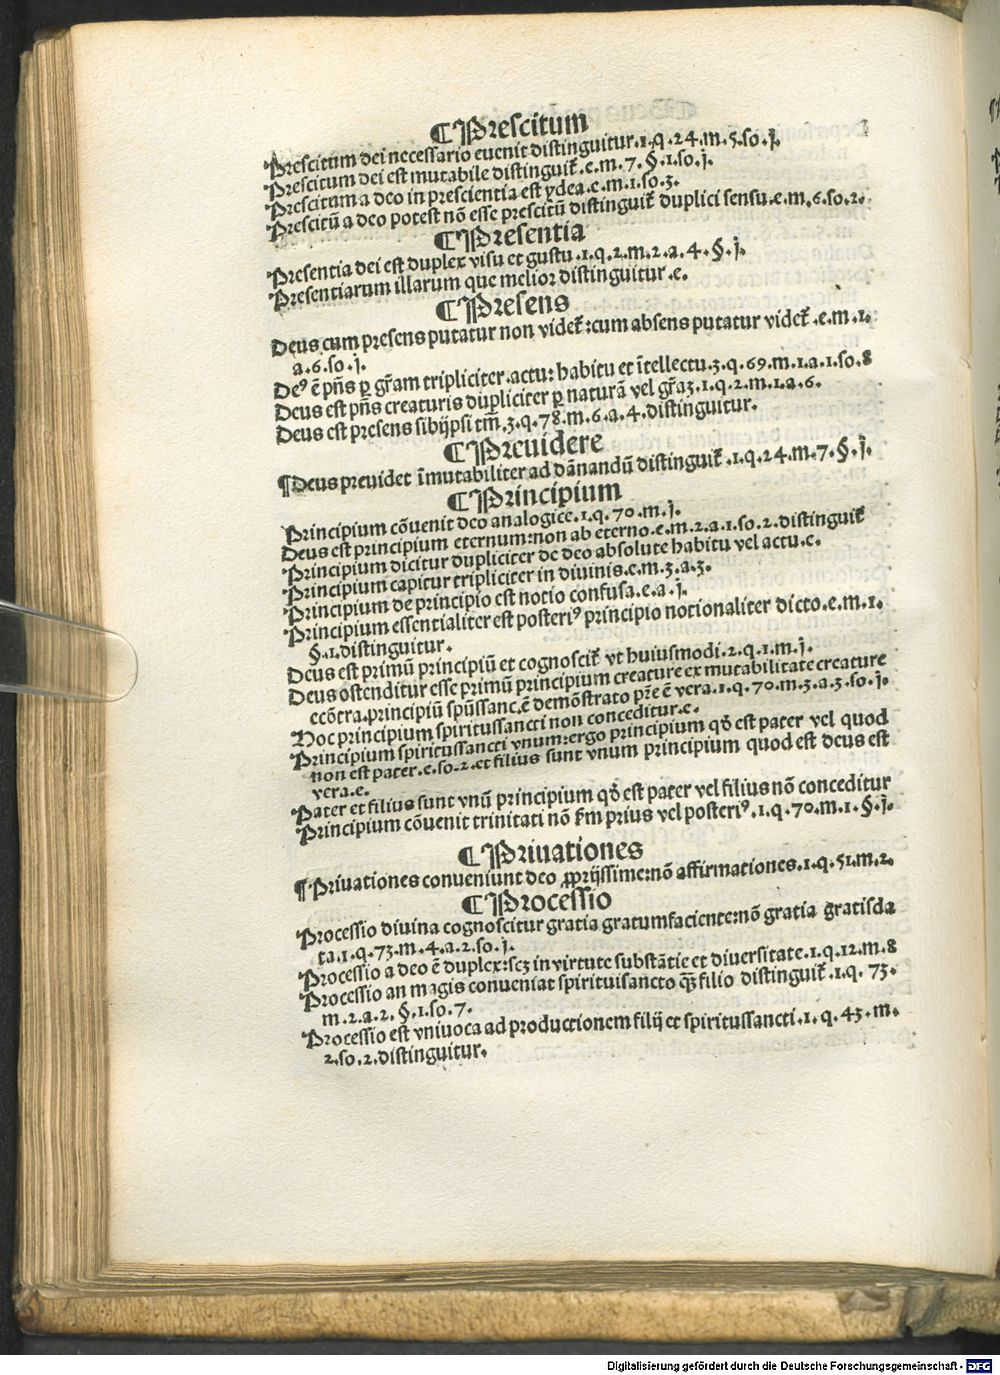 ¶Prescitum
Prescitum dei necessario euenit distinguitur.1.q.24.m.5.so.j.
Prescitum dei est mutabile distinguit᷑.e.m.7.§.1.so.j.
Prescitum a deo in prescientia est ydea.e.m.1.so.3.
Prescitū a deo potest nō esse prescitū distinguit᷑ duplici sensu.e.m.6.so.2.
¶Presentia
Presentia dei est duplex visu et gustu.1.q.2.m.2.a.4.§.j.
Presentiarum illarum que melior distinguitur.e.
¶Presens
Deus cum presens putatur non videt᷑:cum absens putatur videt᷑.e.m.1.
a.6.so.j.
Deꝰ ē pn̄s ꝑ gr̄am tripliciter.actu: habitu et ītellectu.3.q.69.m.1.a.1.so.8
Deus est pn̄s creaturis dupliciter ꝑ naturā vel gr̄aʒ.1.q.2.m.1.a.6.
Deus est presens sibijpsi tm̄.3.q.78.m.6.a.4.distinguitur.
¶Preuidere
¶Deus preuidet īmutabiliter ad dānandū distinguit᷑.1.q.24.m.7.§.j.
¶Principium
Principium cōuenit deo analogice.1.q.70.m.j.
Deus est principium eternum:non ab eterno.e.m.2.a.1.so.2.distinguit᷑
Principium dicitur dupliciter de deo absolute habitu vel actu.e.
Principium capitur tripliciter in diuinis.e.m.3.a.3.
Principium de principio est notio confusa.e.a.j.
Principium essentialiter est posteriꝰ principio notionaliter dicto.e.m.1.
§.1.distinguitur.
Deus est primū principiū et cognoscit᷑ vt huiusmodi.2.q.1.m.j.
Deus ostenditur esse primū principium creature ex mutabilitate creature
ecōtra.principiū spūssanc.ē demōstrato pr̄e ē vera.1.q.70.m.3.a.3.so.j.
Hoc principium spiritussancti non conceditur.e.
Principium spiritussancti vnum:ergo principium qđ est pater vel quod
non est pater.e.so.2.et filius sunt vnum principium quod est deus est
vera.e.
Pater et filius sunt vnū principium qđ est pater vel filius nō conceditur
Principium cōuenit trinitati nō ẜm prius vel posteriꝰ.1.q.70.m.1.§.j.
¶Priuationes
¶Priuationes conueniunt deo ꝓprijssime:nō affirmationes.1.q.51.m.2.
¶Processio
Processio diuina cognoscitur gratia gratumfaciente:nō gratia gratisda
ta.1.q.73.m.4.a.2.so.j.
Processio a deo ē duplex:scʒ in virtute substātie et diuersitate.1.q.12.m.8
Processio an magis conueniat spirituisancto qꝫ filio distinguit᷑.1.q.73.
m.2.a.2.§.1.so.7.
Processio est vniuoca ad productionem filij et spiritussancti.1.q.43.m.
2.so.2.distinguitur.
Digitalisierung gefördert durch die Deutsche Forschungsgemeinschaft - DFG